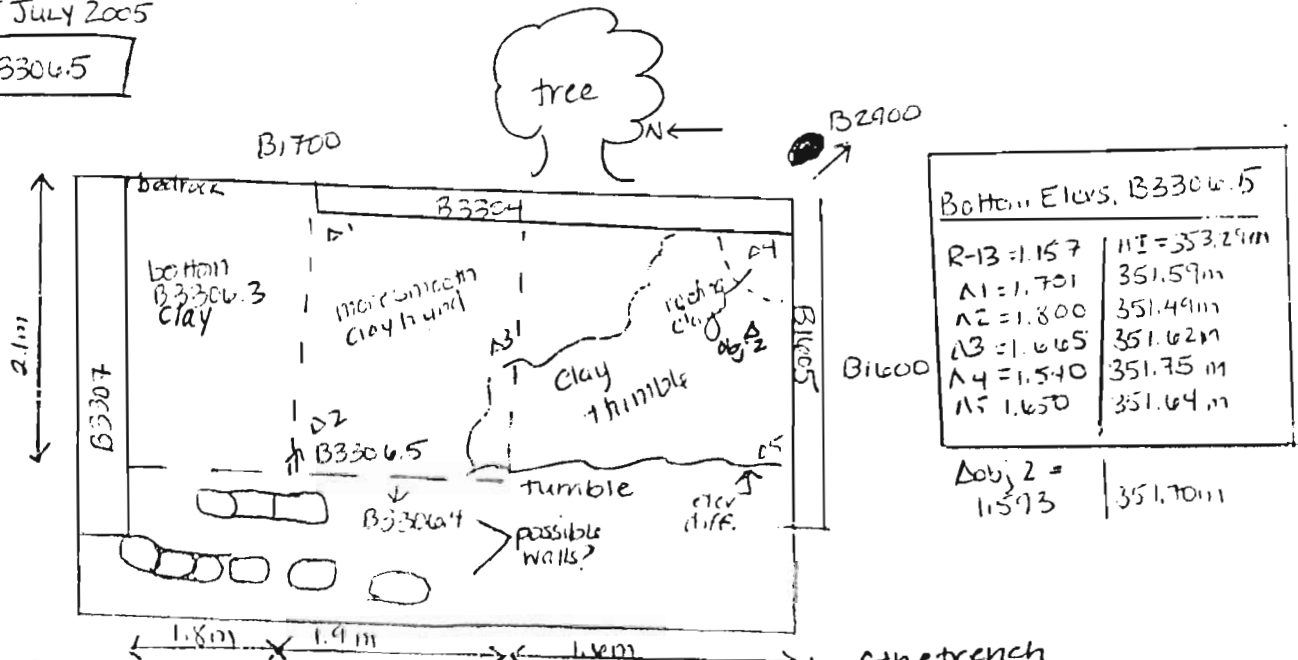 JULY 2005
B3306.5
tree
N
B2900
B1700
bedrock
B3304
Δ1
bottom
B3306.3
clay
more smooth
Clay
Δ4
rocky
clay
obj Δ
2
Δ3
clay
tumble
B1605
B1600
2.1m
B3307
Δ2
B3306.5
Δ5
tumble
B3306.4
elev
diff.
possible
walls?
1.8m
1.9m
of the trench
Bottom Elevs, B3306.5
R-13 = 1.157 HI = 353.29m
Δ1 = 1.701 351.59m
Δ2 = 1.800 351.49m
Δ3 = 1.665 351.62m
Δ4 = 1.540 351.75m
Δ5 1.650 351.64m
Δobj 2 =
1.593 351.70m